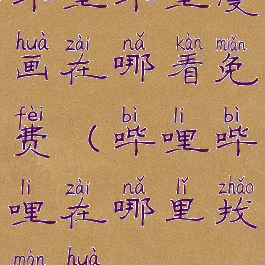 huà zài nǎ kàn miǎn
画在哪看免
fèi bì li bì
费（哔哩哔
li zài nǎ lǐ zhǎo
哩在哪里找
màn huà